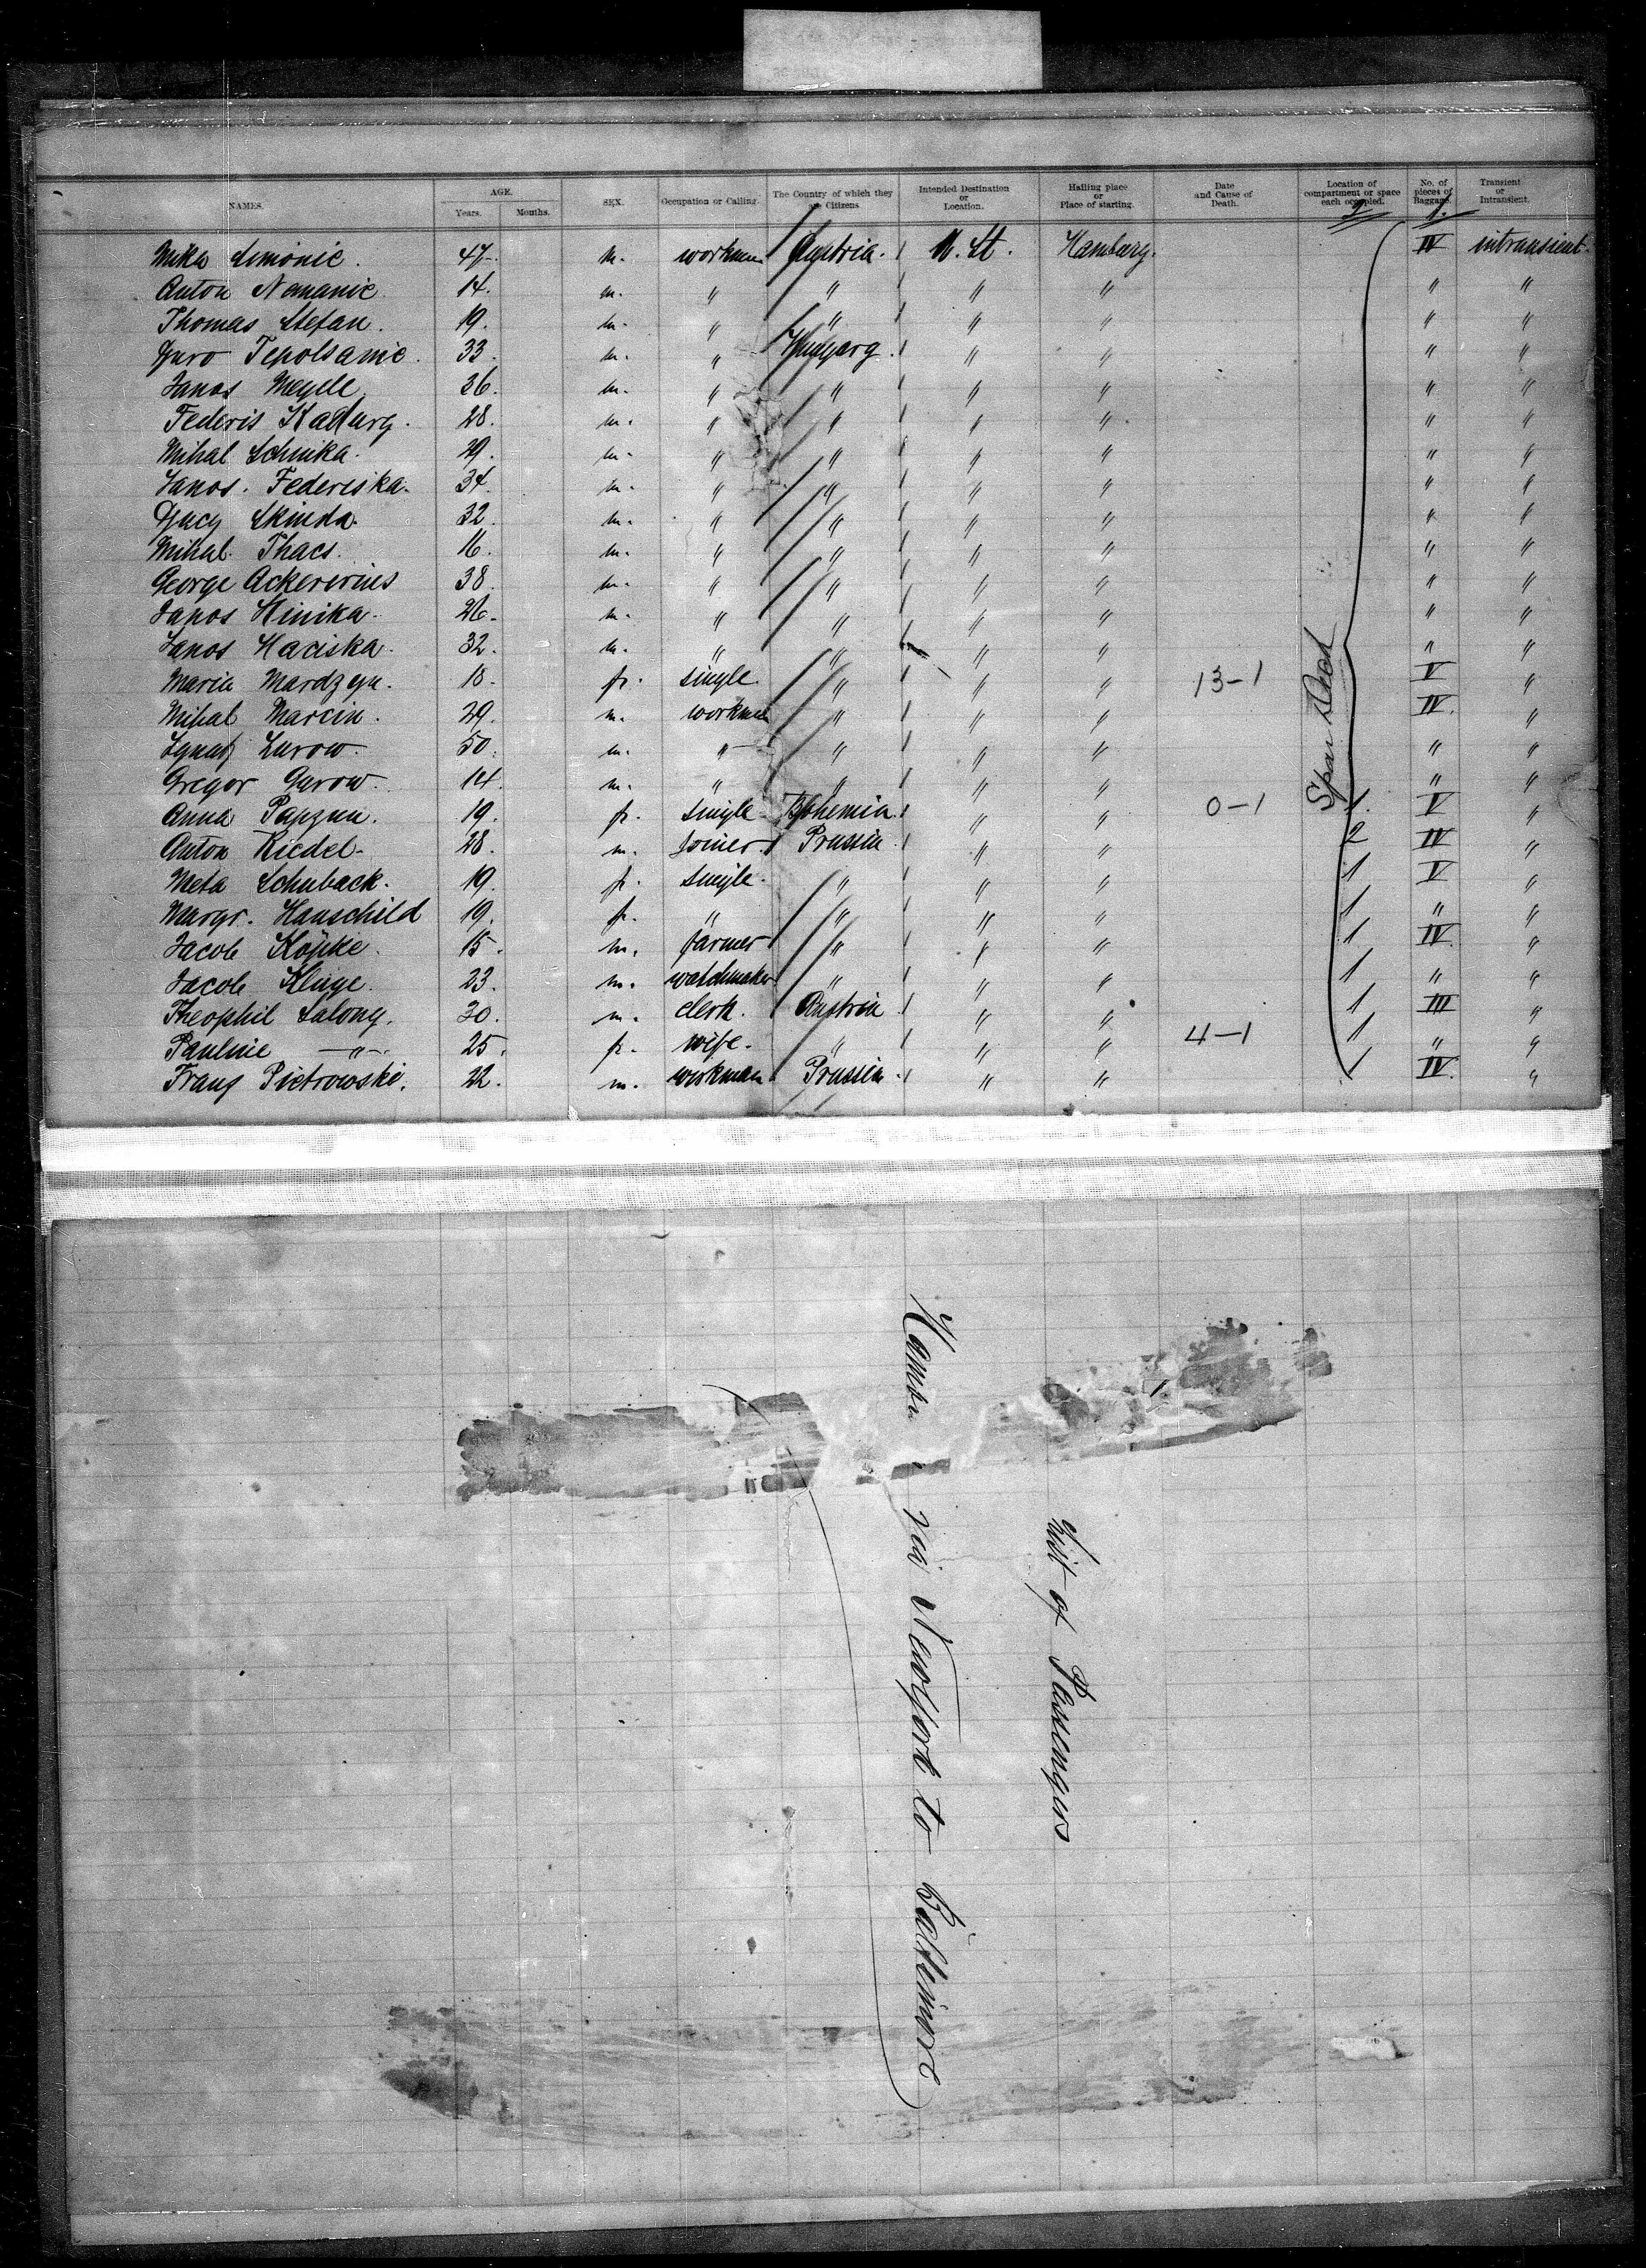 NAMES. AGE. Years. Months. SEX. Occupation or Calling The Country of which they are Citizens Intended Destination or Location. Hailing place or Place of starting. Date and Cause of Death. Location of compartment or space each occupied. No. of pieces of Baggage. Transient or Intransient.
2. 1.
Mika Simonic. 47. m. workman Austria. U. St. Hamburg. IV intransient.
Anton Nemanic 14. m. " " " " " "
Thomas Stefan. 19. m. " " " " " "
Juro Tepolsanic. 33. m. " Hungary. " " " "
Janos Meylle 36. m. " " " " " "
Federis Kadurg. 28. m. " " " " " "
Mihal Schnika. 29. m. " " " " " "
Janos. Federiska. 34. m. " " " " " "
Skinda. 32. m. " " " " " "
Mihal. Thacs. 16. m. " " " " " "
George Ackererius 38. m. " " " " " "
Janos Hinika. 26. m. " " " " " "
Janos Haciska. 32. m. " " " " " "
Maria Mardzyn. 18. f. single. " " " 13-1 V "
Mihal Marcin. 29. m. workman " " " IV. "
Ignatz Lurow. 50. m. " " " " " "
Gregor Gurow. 14. m. " " " " " "
Anna Papzun. 19. f. single Bohemia. " " 0-1 1. V "
Anton Riedel. 28. m. joiner. Prussia. " " 2 IV "
Meta Schuback. 19. f. single. " " " 1 V "
Margr. Hauschild 19. f. " " " " 1 " "
Jacob Köpke. 15. m. farmer " " " 1 IV. "
Jacob Kluge. 23. m. watchmaker " " " 1 " "
Theophil Salong. 30. m. clerk. Austria " " 1 III "
Pauline —"— 25. f. wife. " " " 4-1 1 " "
Franz Pietrowski. 22. m. workman Prussia. " " 1 IV. "
Spar Deck
List of Passengers
via New York to Baltimore